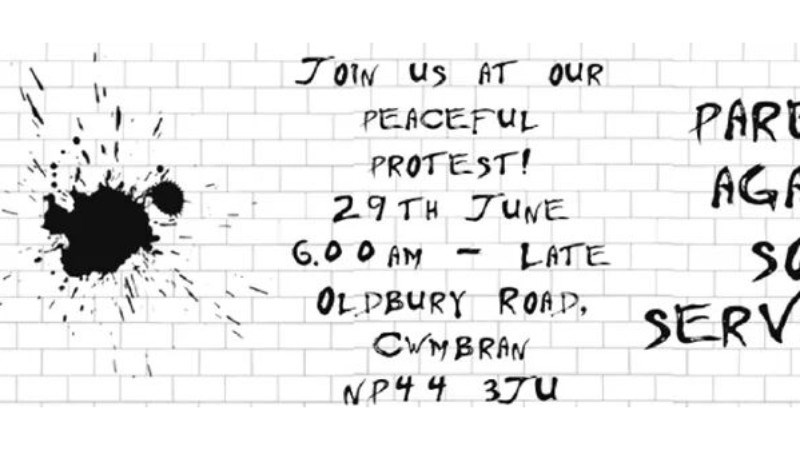 JOIN US AT OUR
PEACEFUL
PROTEST!
29TH JUNE
6.00AM - LATE
OLDBURY ROAD,
CWMBRAN
NP44 3JU
PARE
AGA
SO
SERV